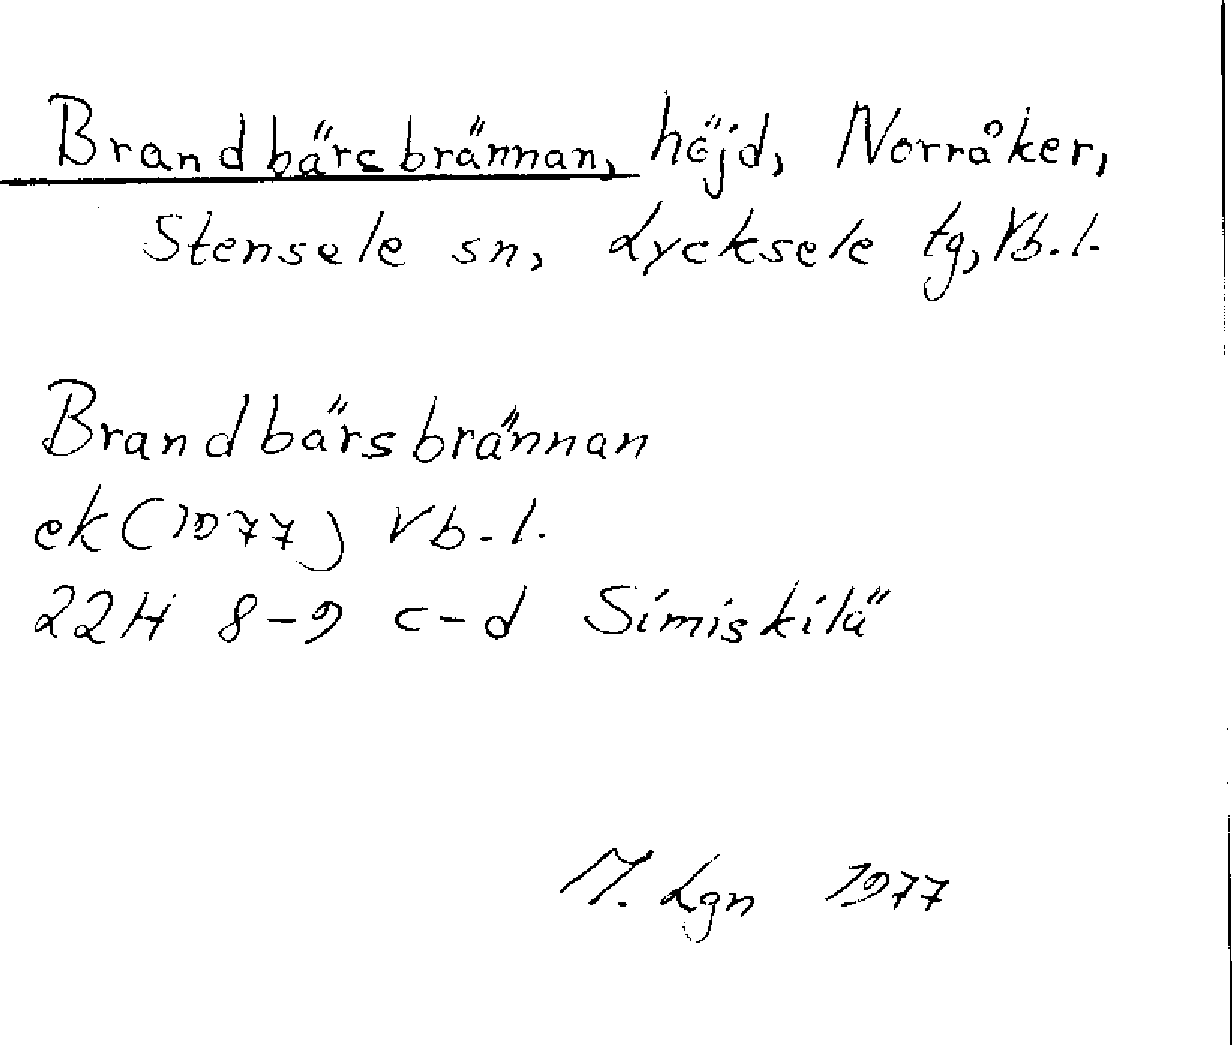 Brandbärsbrännan, höjd, Norråker,
Stensele sn, Lycksele tg, Vb.l.
Brandbärsbrännan
ek (1977) Vb.l.
22H 8-9 c-d Simiskilä
M. Lgn 1977